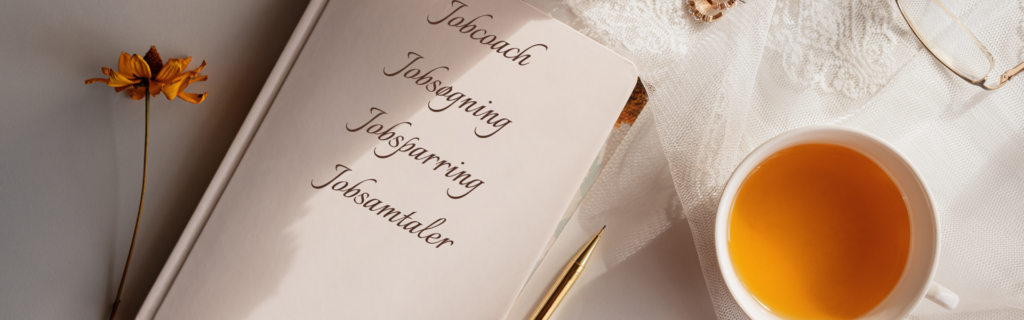 Jobcoach
Jobsøgning
Jobsparring
Jobsamtaler